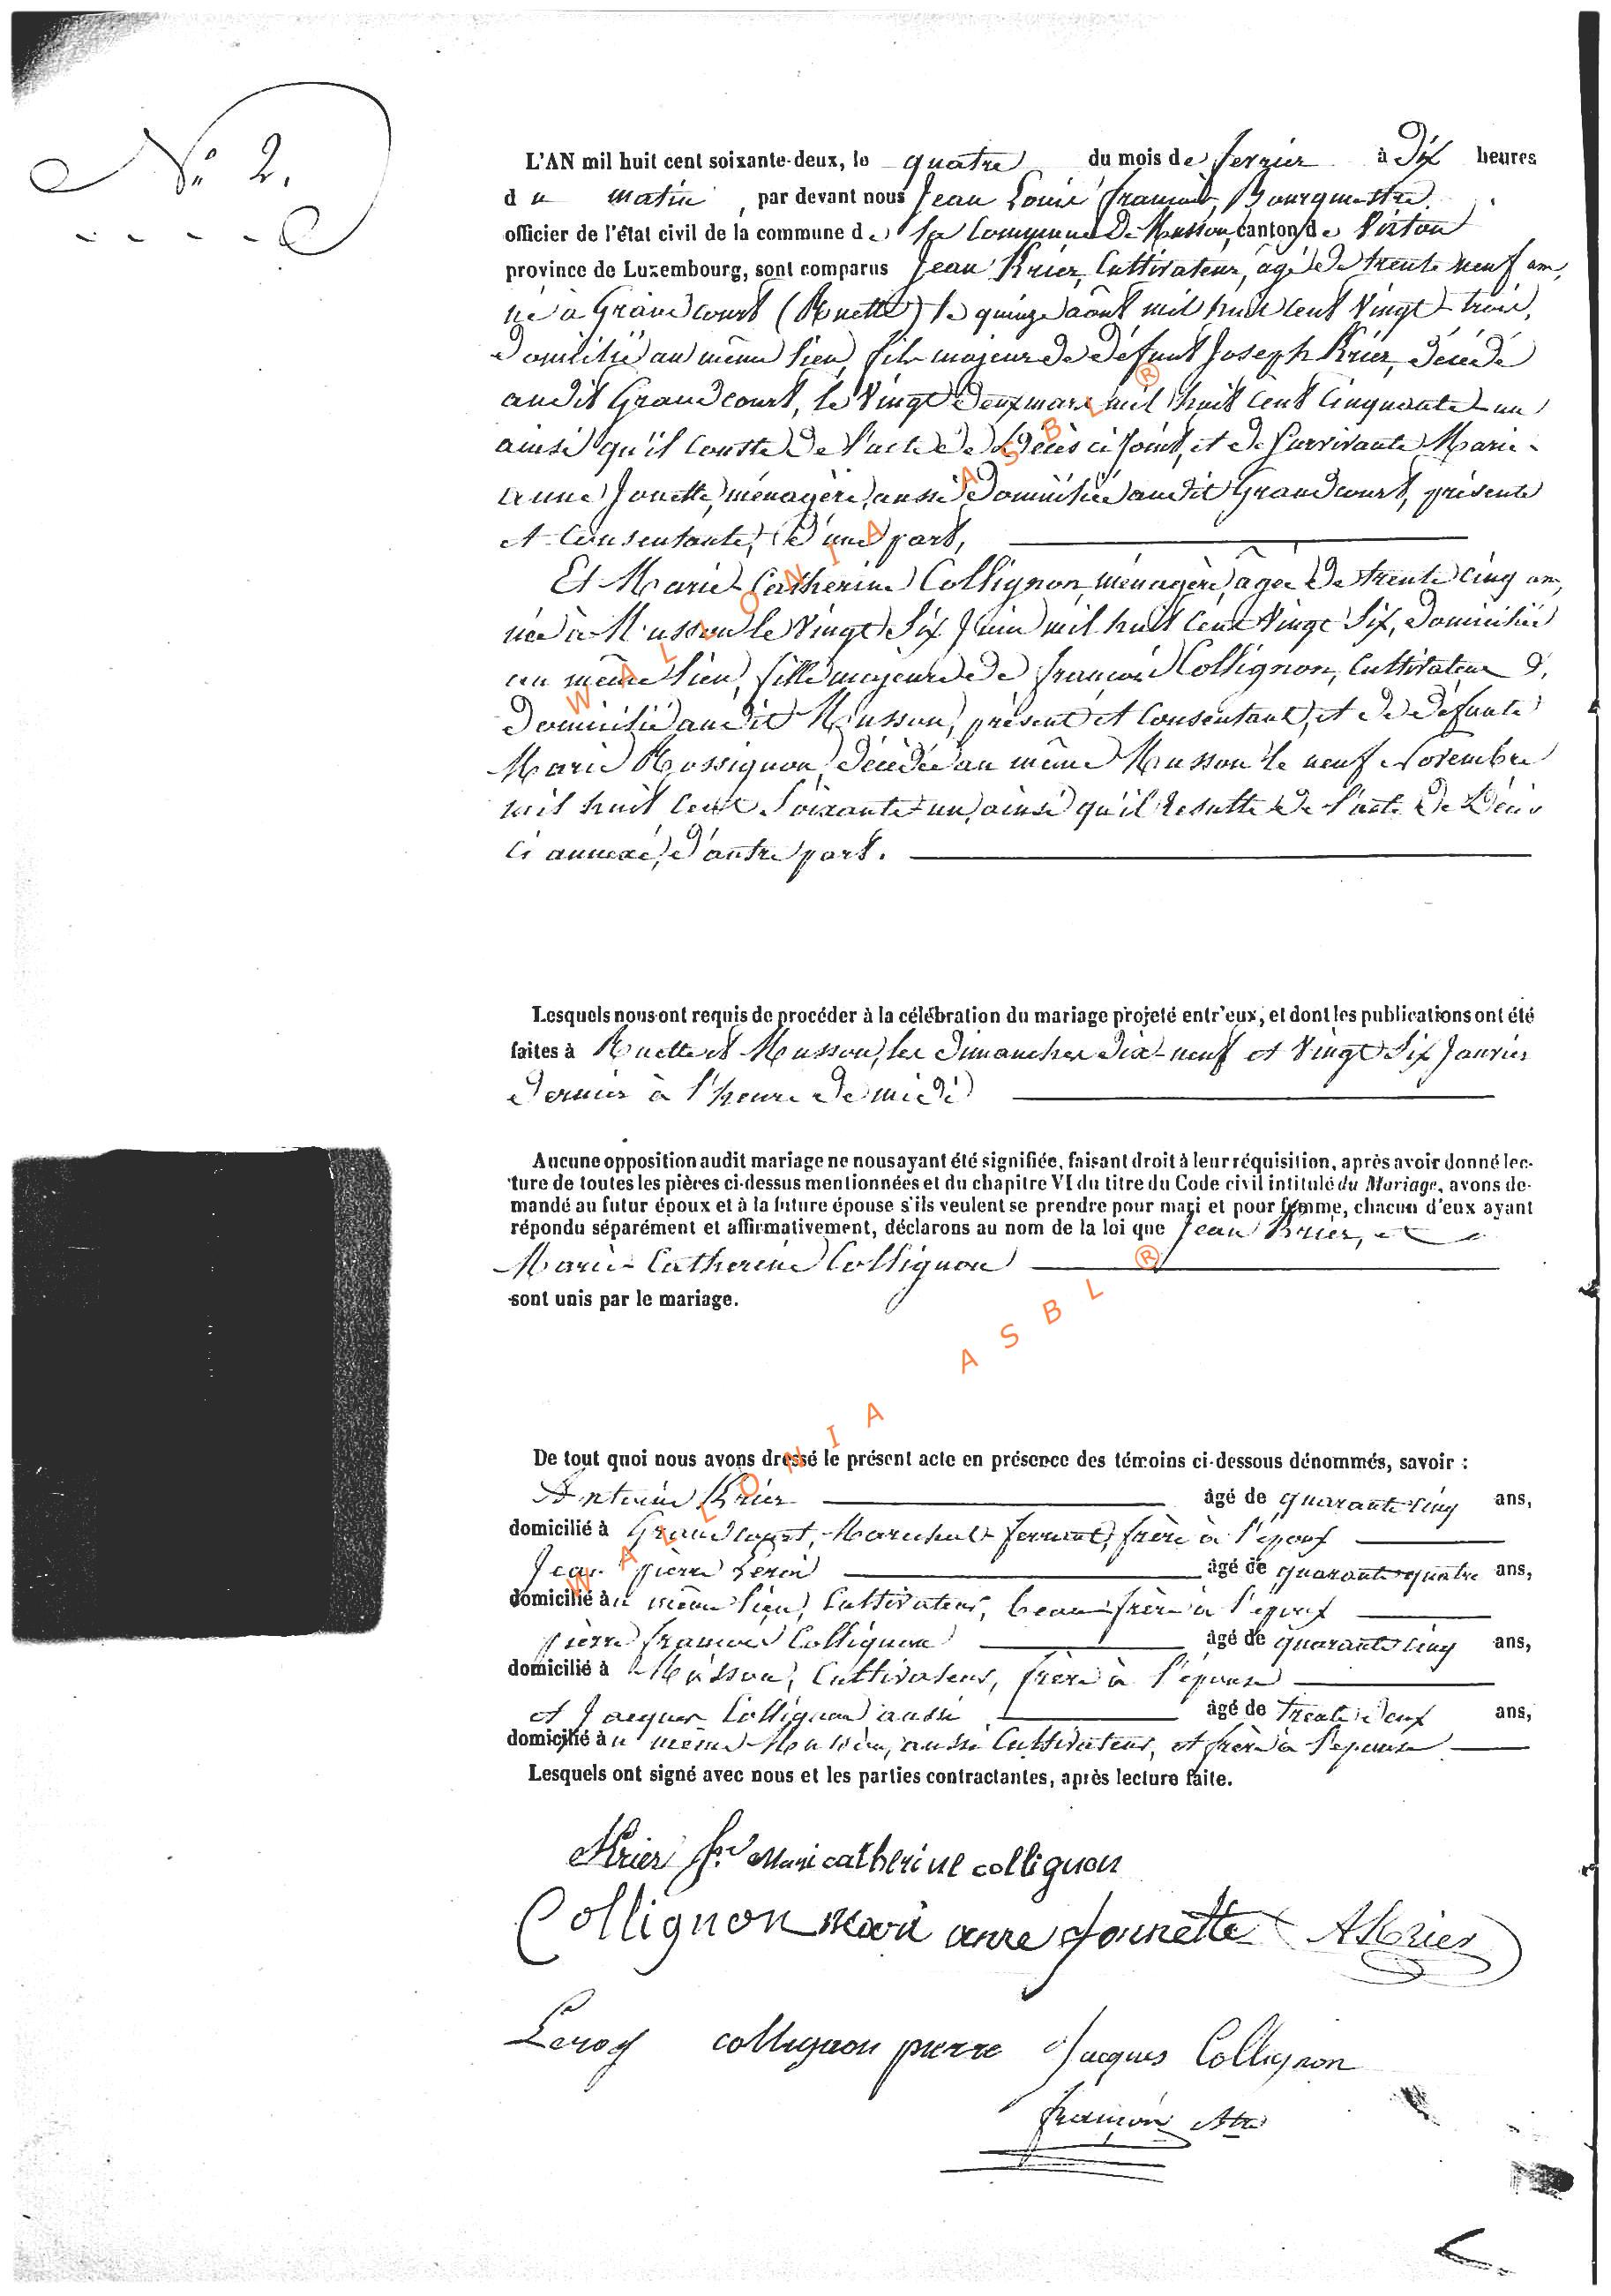 N° 2.
L'AN mil huit cent soixante-deux, le quatre du mois de fevrier à Dix heures
du matin, par devant nous Jean Louis françois, Bourgmestre
officier de l'état civil de la commune de la Commune De Musson, canton de Virton
province de Luxembourg, sont comparus Jean Krier, Cultivateur, agé de trente neuf ans,
né à Grandcourt (Ruette) le quinze août mil huit cent Vingt-trois,
Domicilié au même lieu, fils majeur de défunt Joseph Krier, décédé
audit Grandcourt, le Vingt Deux mars mil huit cent Cinquante-un
ainsi qu'il Conste de l'acte de Décès ci joint, et de Survivante Marie-
anne Jonette, ménagère, aussi Domiciliée audit Grandcourt, présente
et Consentante, d'une part,
Et Marie-Catherine Collignon, ménagère, âgée de trente cinq ans,
née à Musson le Vingt Six Juin mil huit cent Vingt Six, Domiciliée
au même lieu, fille majeure de françois Collignon, Cultivateur
Domicilié audit Musson, présent et Consentant, et de Défunte
Marie Rossignon, décédée au même Musson le neuf Novembre
mil huit Cent Soixante-un, ainsi qu'il Resulte de l'acte de Décès
Ci annexé, d'autre part.
Lesquels nous ont requis de procéder à la célébration du mariage projeté entr'eux, et dont les publications ont été
faites à Ruette et Musson, les Dimanches Dix-neuf et Vingt Six Janvier
Dernier à l'heure De midi
Aucune opposition audit mariage ne nous ayant été signifiée, faisant droit à leur réquisition, après avoir donné lec-
ture de toutes les pièces ci-dessus mentionnées et du chapitre VI du titre du Code civil intitulé du Mariage, avons de-
mandé au futur époux et à la future épouse s'ils veulent se prendre pour mari et pour femme, chacun d'eux ayant
répondu séparément et affirmativement, déclarons au nom de la loi que Jean Krier, et
Marie-Catherine Collignon
sont unis par le mariage.
De tout quoi nous avons dressé le présent acte en présence des témoins ci-dessous dénommés, savoir :
Antoine Krier âgé de quarante cinq ans,
domicilié à Grandcourt, Marechal-ferrant, frère à l'époux
Jean pierre âgé de quarante quatre ans,
domicilié au même lieu, Cultivateur, beau-frère à l'époux
pierre françois Collignon âgé de quarante cinq ans,
domicilié à Musson, Cultivateur, frère à l'épouse
et Jacques Collignon aussi âgé de trente Deux ans,
domicilié au même Musson, aussi Cultivateur, et frère à l'épouse
Lesquels ont signé avec nous et les parties contractantes, après lecture faite.
Krier Marie catherine collignon
Collignon marie anne Jonnette A Krier
Leroy collignon pierre Jacques Collignon
françois
WALLONIA ASBL ®
WALLONIA ASBL ®